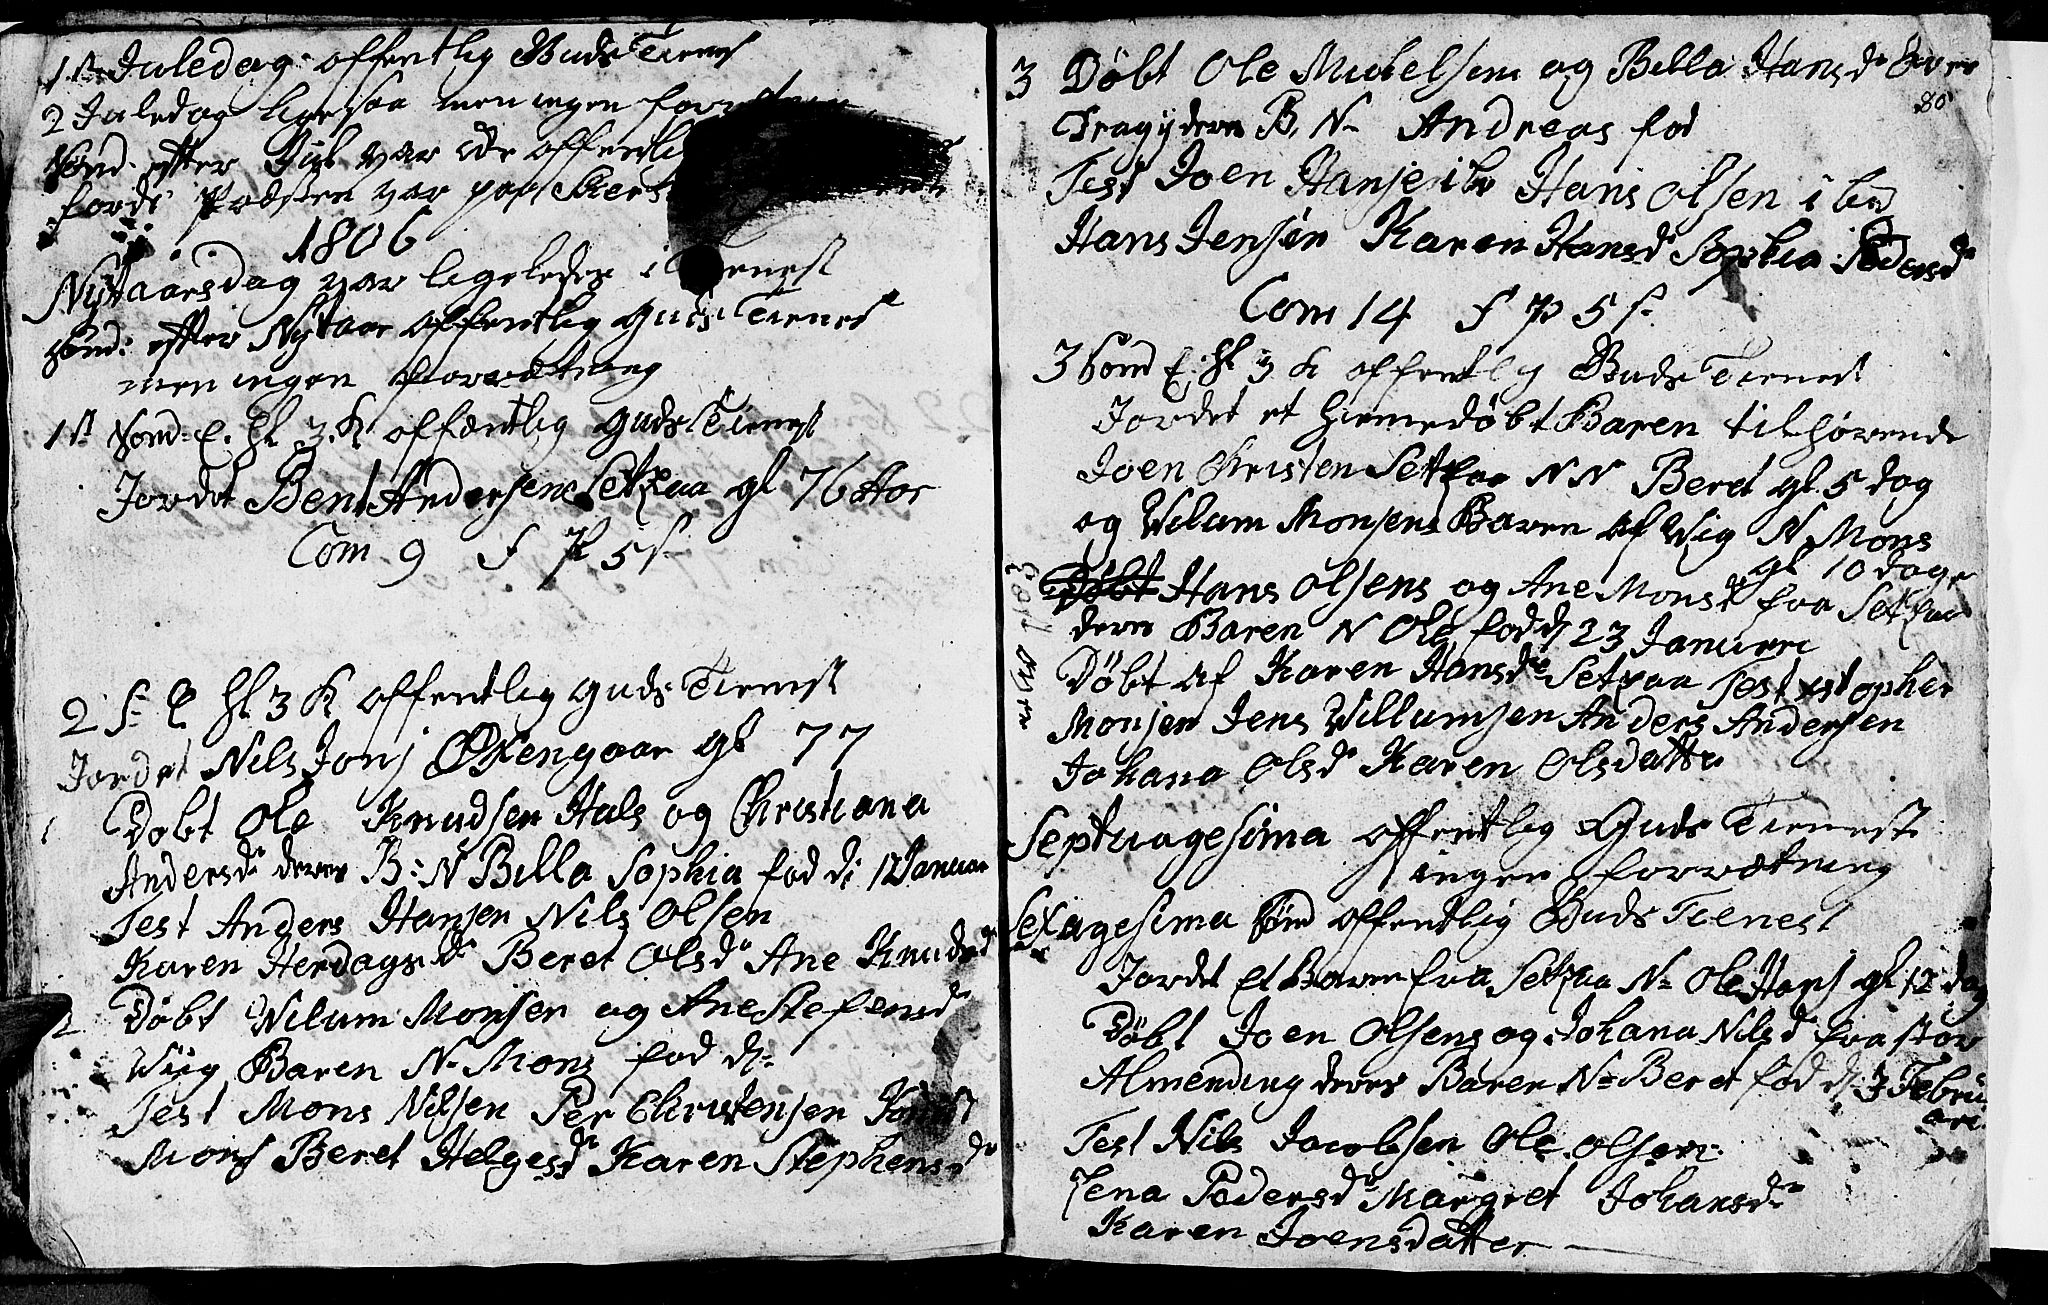 1st Juledag offentlig Guds Tienest
2 Juledag ligesaa men ingen
Sønd: efter Jul var ike offentlig
fordi Præsten var paa
1806
Nytaarsdag var ligeledes Tienest
Sønd: efter Nytaar offentlig Guds Tienest
men ingen forrætning
1st Sønd: E. Hl. 3. K offentlig Guds Tienest
Jordet Bent Andersen Setraa gl 76 Aar
Com 9 f P 5 s
2 S: E Hl 3 K offentlig Guds Tienest
Jordet Nils Jons Oxengaar gl 77
1 Døbt Ole Knudsen Hals og Christiana
Andersdr deres B: N Billa Sophia fød d: 12 Januar
Test Anders Hansen Nils Olsen
Karen Herdagsdr Beret Olsdr Ane Knudsdr
2 Døbt Wilum Monsen og Ane Stefensdr
Wiig Baren N: Mons fød d:
Test Mons Nilsen Per Christensen
Mons Beret Helgesdr Karen Stephensdr
80
3 Døbt Ole Mickelsen og Billa Hansdr
deres B. N: Andreas fød
Test Joen Hansen ibd Hans Olsen ibd
Hans Jensen Karen Hansdr Sophia Pedersdr
Com 14 f P 5 s
3 Sønd E: Hl 3 K offentlig Guds Tienest
Jordet et hiemedøbt Baren tilhørende
Joen Kristen Setraa NN Beret gl. 5 dag
og Wilum Monsens Baren af Wig N Mons
gl 10 dage
Døbt Hans Olsens og Ane Monsdr fra Setraa
deres Baren N Ole fød d 23 Januari
Døbt af Karen Hansdr Setraa Test
Monsen Jens Willumsen Anders Andersen
Johana Olsdr Karen Olsdatter
Septuagesima offentlig Guds Tieneste
ingen forrætning
Sexagesima Sønd offentlig Guds Tienest
Jordet et Baren fra Setraa N: Ole Hans gl 12 dag
Døbt Joen Olsens og Johana Nilsdr fra Stor
Almending deres Baren N: Beret fød d: 3 Febru
ari
Test Nils Jacobsen Ole Olsen
Lena Pedersdr Margret Johansdr
Karen Joensdatter